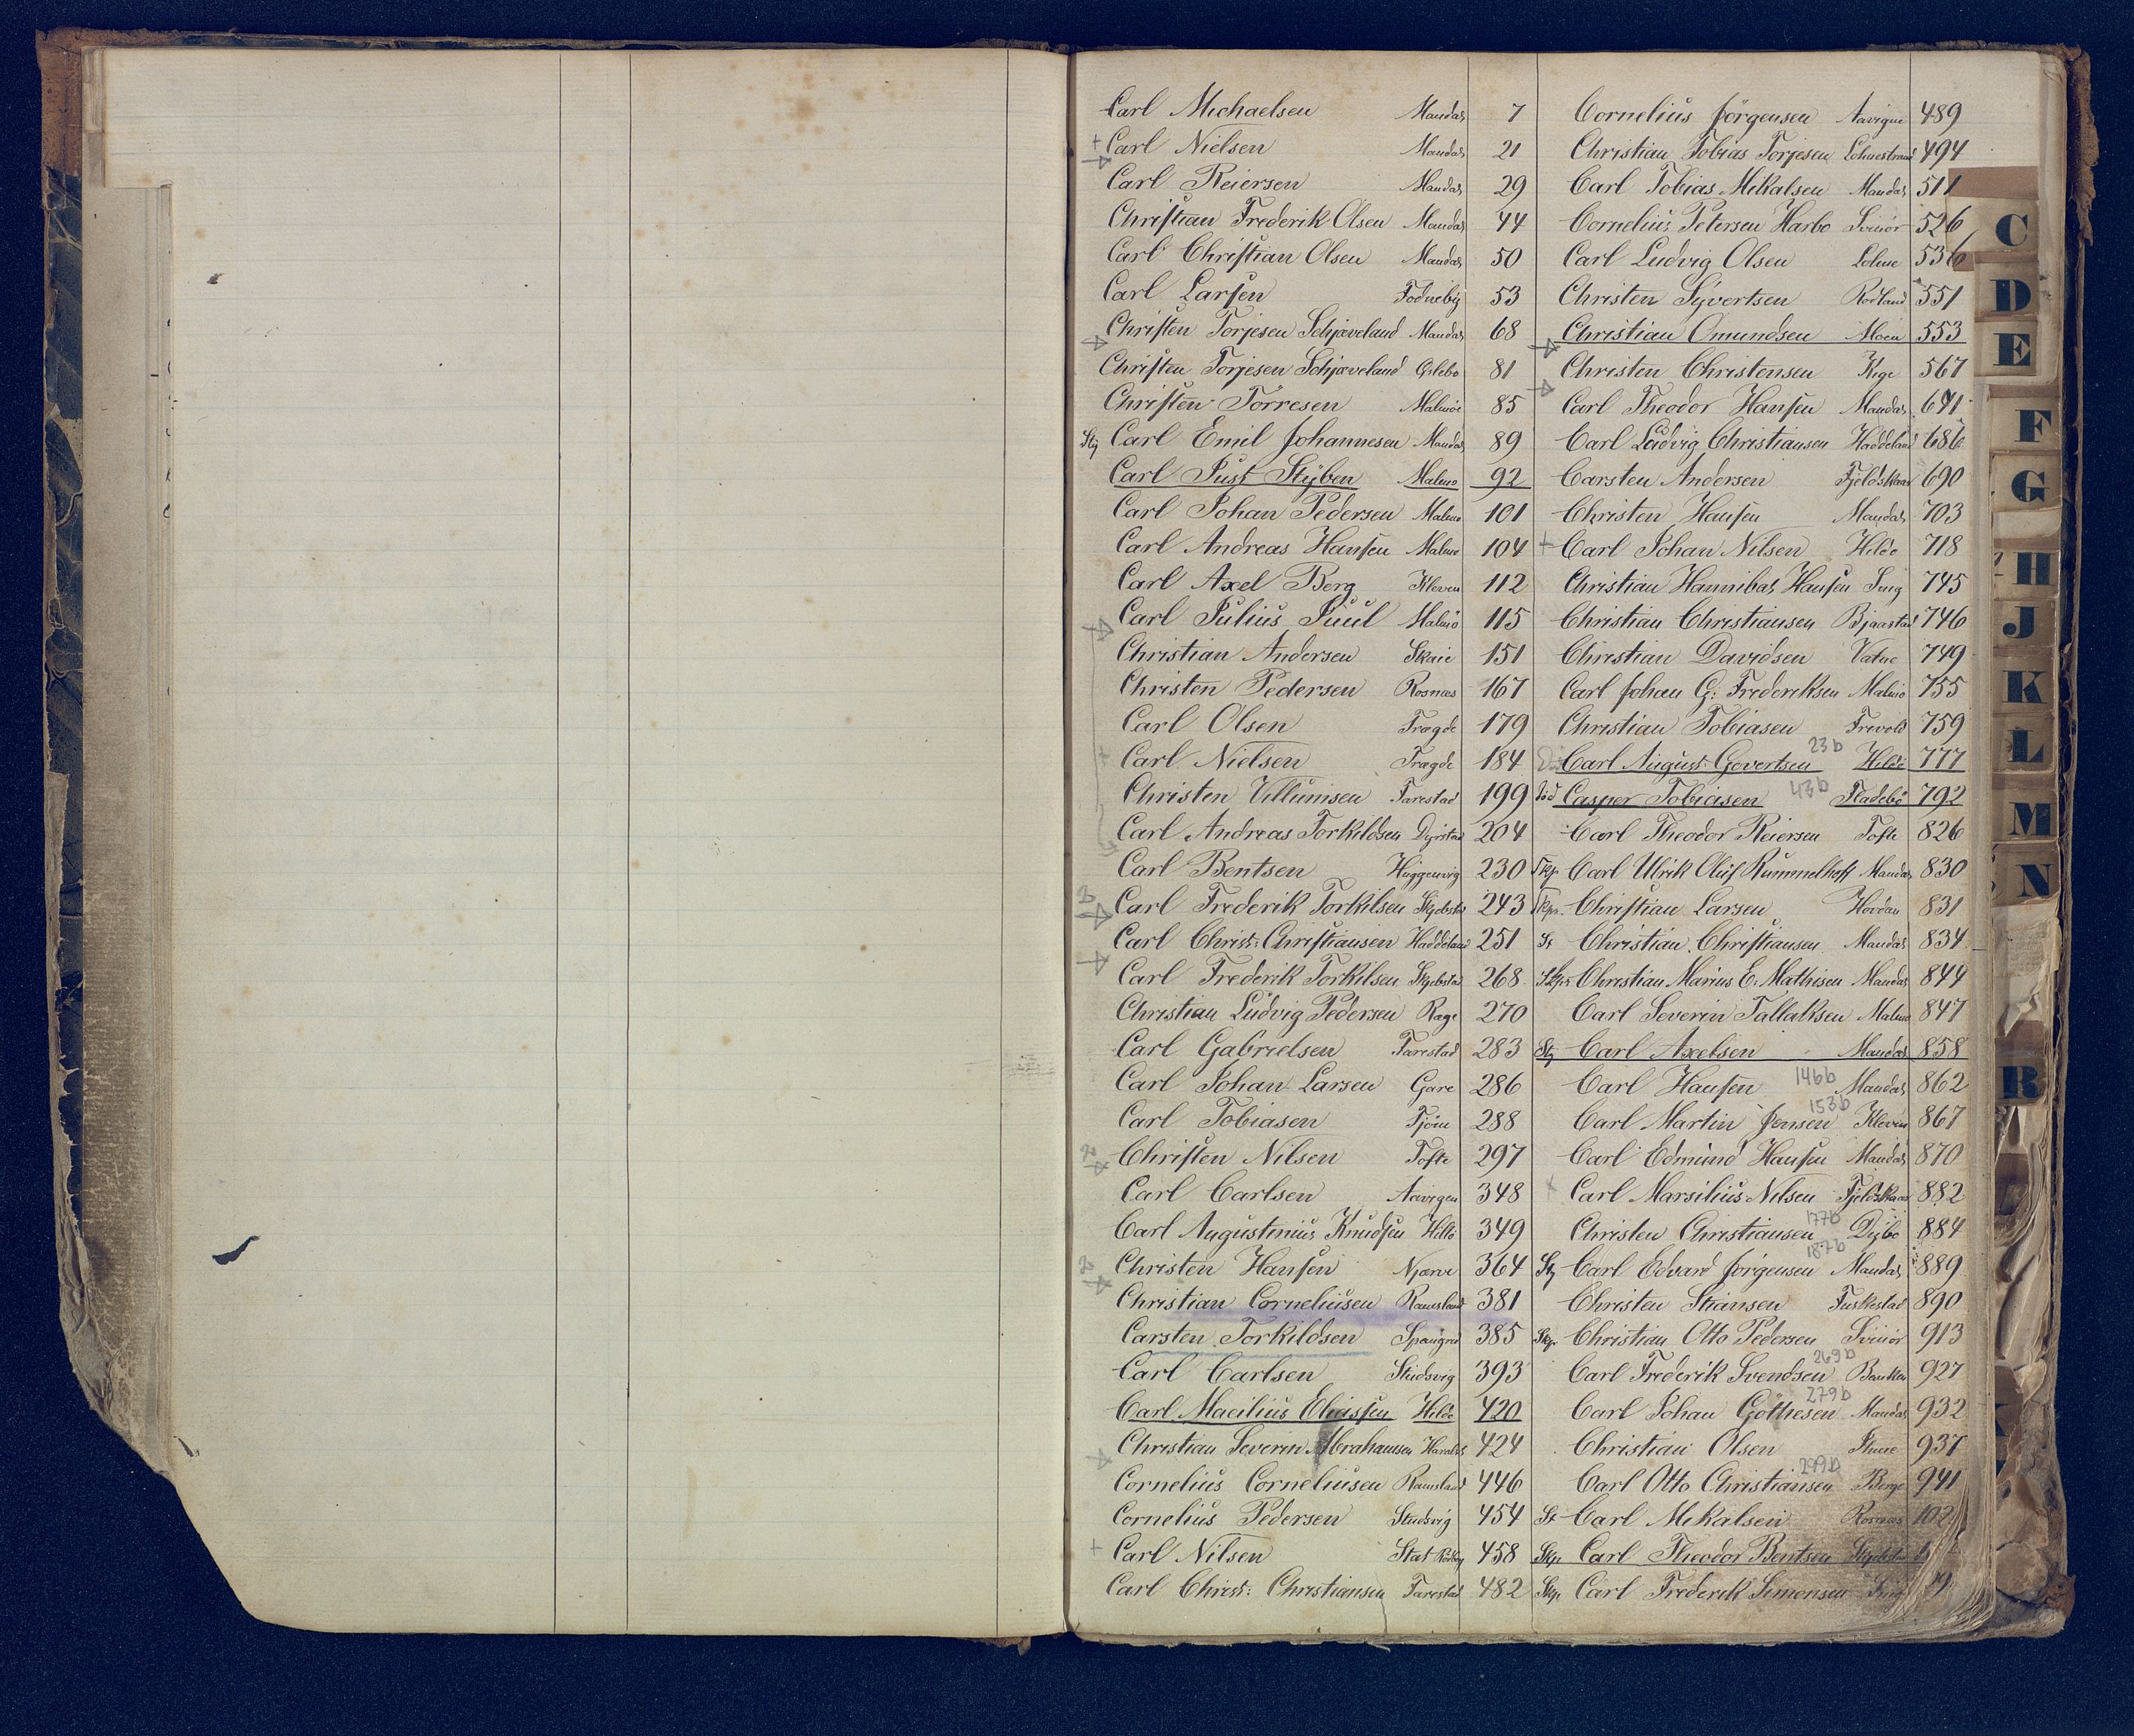 Carl Michaelsen Mandal 7
+ Carl Nielsen Mandal 21
Carl Reiersen Mandal 29
Christian Frederik Olsen Mandal 44
Carl Christian Olsen Mandal 50
Carl Larsen Fodnebÿ 53
Christen Torjesen Schjæveland Mandal 68
Christen Torjesen Schjæveland 81
Christen Torresen Malmöe 85
Stÿ Carl Emil Johannesen Mandal 89
Carl Just Stÿben Malmö 92
Carl Johan Pedersen Malmö 101
Carl Andreas Hansen Malmö 104
Carl Axel Berg Kleven 112
Carl Julius Juul Malmö 115
Christian Andersen Skaie 151
Christen Pedersen Rosnæs 167
Carl Olsen Tragde 179
+ Carl Nielsen Tragde 184
Christen Villumsen Tarestad 199
Carl Andreas Torkildsen Dyrstad 204
Carl Bentsen Huggenvig 230
Carl Frederik Torkilsen Skjebstad 243
Carl Christ: Christiansen Haddeland 251
Carl Frederik Torkilsen Skjebstad 268
Christian Ludvig Pedersen Rege 270
Carl Gabrielsen Tarestad 283
Carl Johan Larsen Gare 286
Carl Tobiasen Tjöm 288
Christen Nilsen Tofte 297
Carl Carlsen Aavigen 348
Carl Augustinius Knudsen Hille 349
Christen Hansen Njærve 364
Christian Corneliusen Ramsland 381
Carsten Torkildsen Spangred 385
Carl Carlsen Studsvig 393
Carl Macilius Eliassen Hilde 420
Christian Severin Abrahamsen 424
Cornelius Corneliusen Ramsland 446
Cornelius Pedersen Studsvig 454
+ Carl Nilsen 458
Carl Christ: Christiansen Tarestad 482
Cornelius Jörgensen Aavigen 489
Christian Tobias Torjesen Lohnestrand 494
Carl Tobias Mikalsen Mandal 511
Cornelius Petersen Harbo Svinör 526
Carl Ludvig Olsen Lohne 536
Christen Sÿvertsen Rödland 551
Christian Omundsen Moen 553
Christen Christensen Kige 567
Carl Theodor Hansen Mandal 641
Carl Ludvig Christiansen Haddeland 686
Carsten Andersen Fjeldskaar 690
Christen Hansen Mandal 703
+ Carl Johan Nilsen Hilde 718
Christian Hannibal Hansen 745
Christian Christiansen Bjaastad 746
Christian Davidsen Vatne 749
Carl Johan G: Frederiksen Malmö 755
Christian Tobiasen Trevold 759
23b
Carl August Govertsen Hilde 777
död Casper Tobiasen 43b Fladebö 792
Carl Theodor Reiersen Tofte 826
Skp. Carl Ulrik Oluf Rummelhoff Mandal 830
Skpr. Christian Larsen Hovdan 831
St Christian Christiansen Mandal 834
Skpr Christian Marius E. Mathisen Mandal 844
Carl Severin Tallaksen Malmö 847
Stÿ Carl Axelsen Mandal 858
Carl Hansen 146b Mandal 862
153b
Carl Martin Jensen Kleven 867
Carl Edmund Hansen Mandal 870
+ Carl Marsilius Nilsen Fjeldskaar 882
177b
Christen Christiansen Dÿbo 884
187b
Stÿ Carl Edvard Jörgensen Mandal 889
Christen Stiansen Tuskestad 890
Skp. Christian Otto Pedersen Svinör 913
269b
Carl Frederik Svendsen Banken 927
279b
Carl Johan Göthesen Mandal 932
Christian Olsen 937
299b
Carl Otto Christiansen Berge 941
St Carl Mikalsen Rosnæs 102
Skp. Carl Theodor Bentsen Skjebstad
Skp. Carl Frederik Simonsen
C
D
E
F
G
H
J
K
L
M
N
R